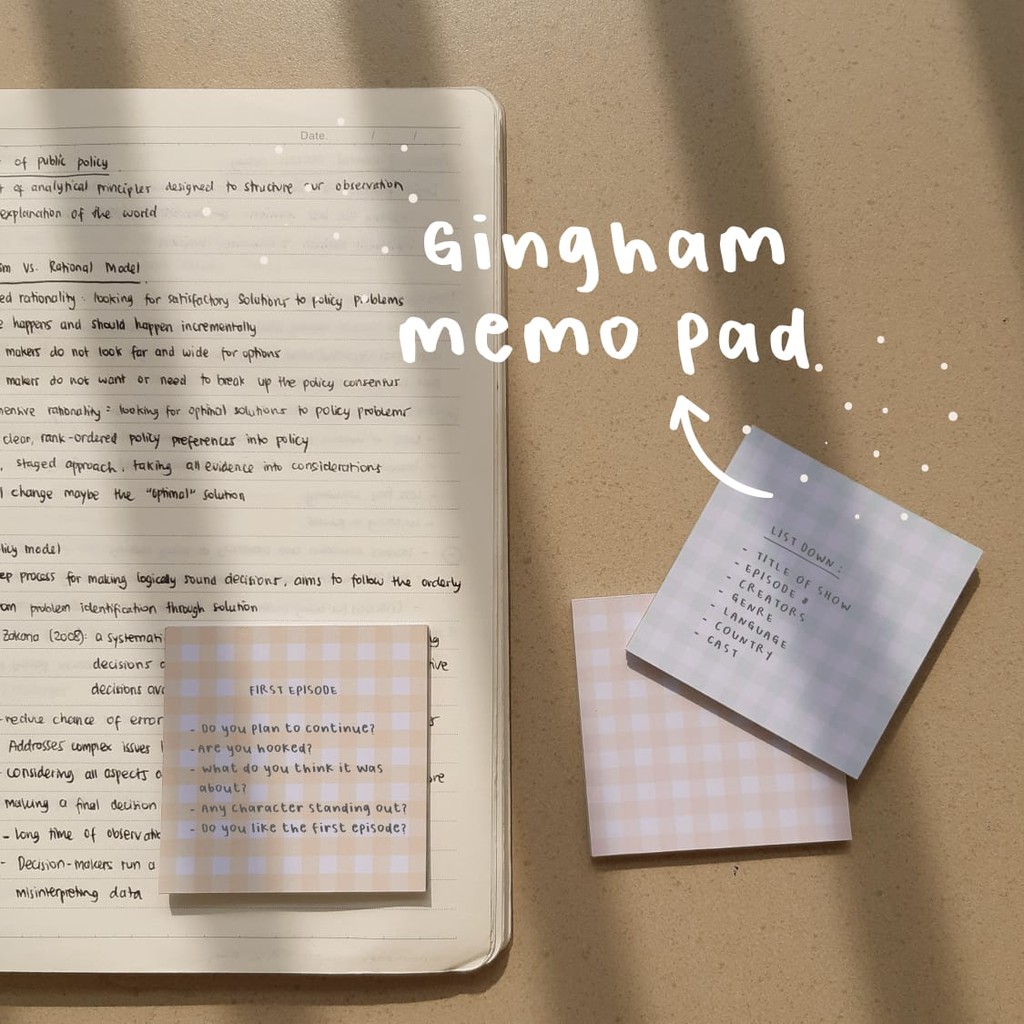 Date. / /
of public policy
of analytical principles designed to structure our observation
explanation of the world
vs. Rational Model
rationality: looking for satisfactory solutions to policy problems
happens and should happen incrementally
makers do not look far and wide for options
makers do not want or need to break up the policy consensus
rationality: looking for optimal solutions to policy problems
clear, rank-ordered policy preferences into policy
, staged approach, taking all evidence into considerations
change maybe the "optimal" solution
model
process for making logically sound decisions, aims to follow the orderly
problem identification through solution
Zakaria (2008): a
decisions
decisions
reduce chance of error
Addresses complex issues
- considering all aspects
making a final decision
- long time of
- Decision-makers run a
misinterpreting data
FIRST EPISODE
- Do you plan to continue?
- Are you hooked?
- what do you think it was
about?
- Any character standing out?
- Do you like the first episode?
Gingham
memo pad
LIST DOWN:
- TITLE OF SHOW
- EPISODE #
- CREATORS
- GENRE
- LANGUAGE
- COUNTRY
- CAST